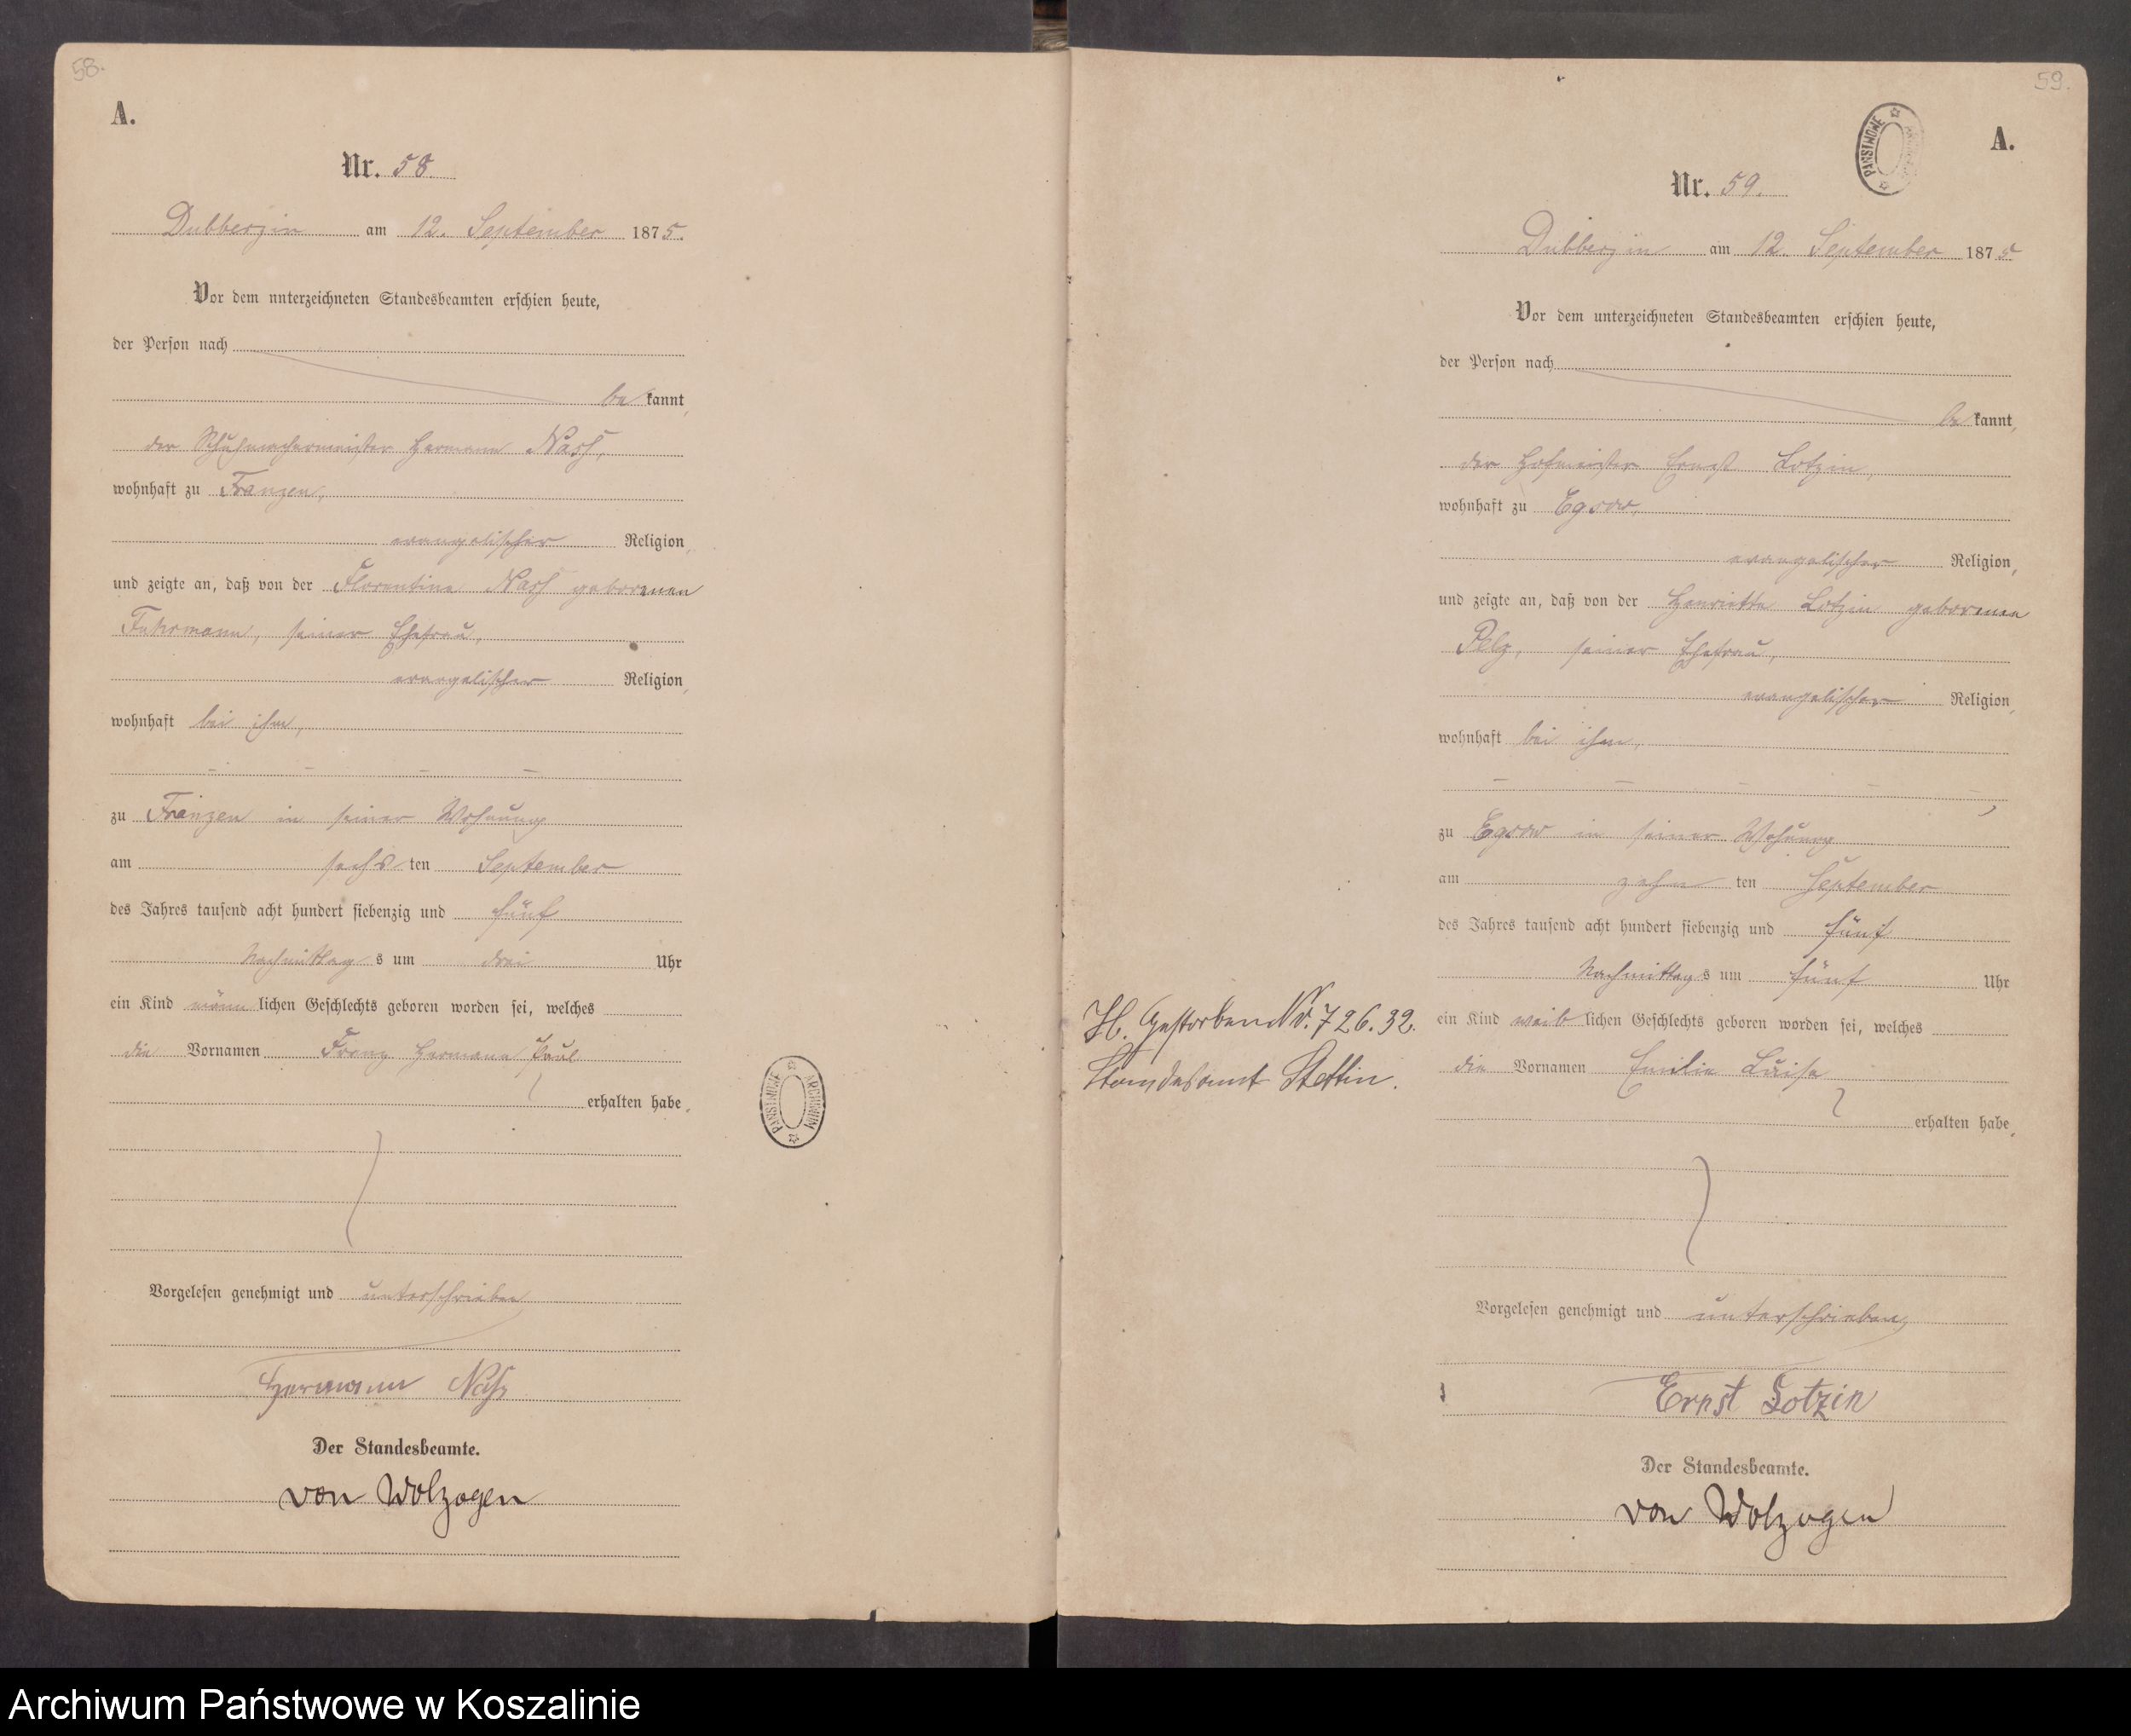 58.
A.
Nr. 58.
Dubberzin am 12. September 1875.
Vor dem unterzeichneten Standesbeamten erschien heute,
der Person nach
bekannt,
der Schuhmachermeister Hermann Nass,
wohnhaft zu Franzen,
evangelischer Religion,
und zeigte an, daß von der Florentine Nass geborenen
Fuhrmann, seiner Ehefrau,
evangelischer Religion,
wohnhaft bei ihm,
zu Franzen in seiner Wohnung
am sechsten September
des Jahres tausend acht hundert siebenzig und fünf
Nachmittags um drei Uhr
ein Kind männlichen Geschlechts geboren worden sei, welches
die Vornamen Franz Hermann Paul
erhalten habe.
Vorgelesen genehmigt und unterschrieben
Hermann Nass
Der Standesbeamte.
von Wolzogen
PAŃSTWOWE ARCHIWUM
59.
A.
PAŃSTWOWE
Nr. 59.
Dubberzin am 12. September 1875
Vor dem unterzeichneten Standesbeamten erschien heute,
der Person nach
bekannt,
der Hofmeister Ernst Lotzin,
wohnhaft zu Egsow,
evangelischer Religion,
und zeigte an, daß von der Henriette Lotzin geborenen
Pelz, seiner Ehefrau,
evangelischer Religion,
wohnhaft bei ihm,
zu Egsow in seiner Wohnung
am zehnten September
des Jahres tausend acht hundert siebenzig und fünf
Nachmittags um fünf Uhr
ein Kind weiblichen Geschlechts geboren worden sei, welches
die Vornamen Emilie Luise
erhalten habe.
Vorgelesen genehmigt und unterschrieben
Ernst Lotzin
Der Standesbeamte.
von Wolzogen
Gestorben Nr. 726.32.
Standesamt Stettin.
Archiwum Państwowe w Koszalinie